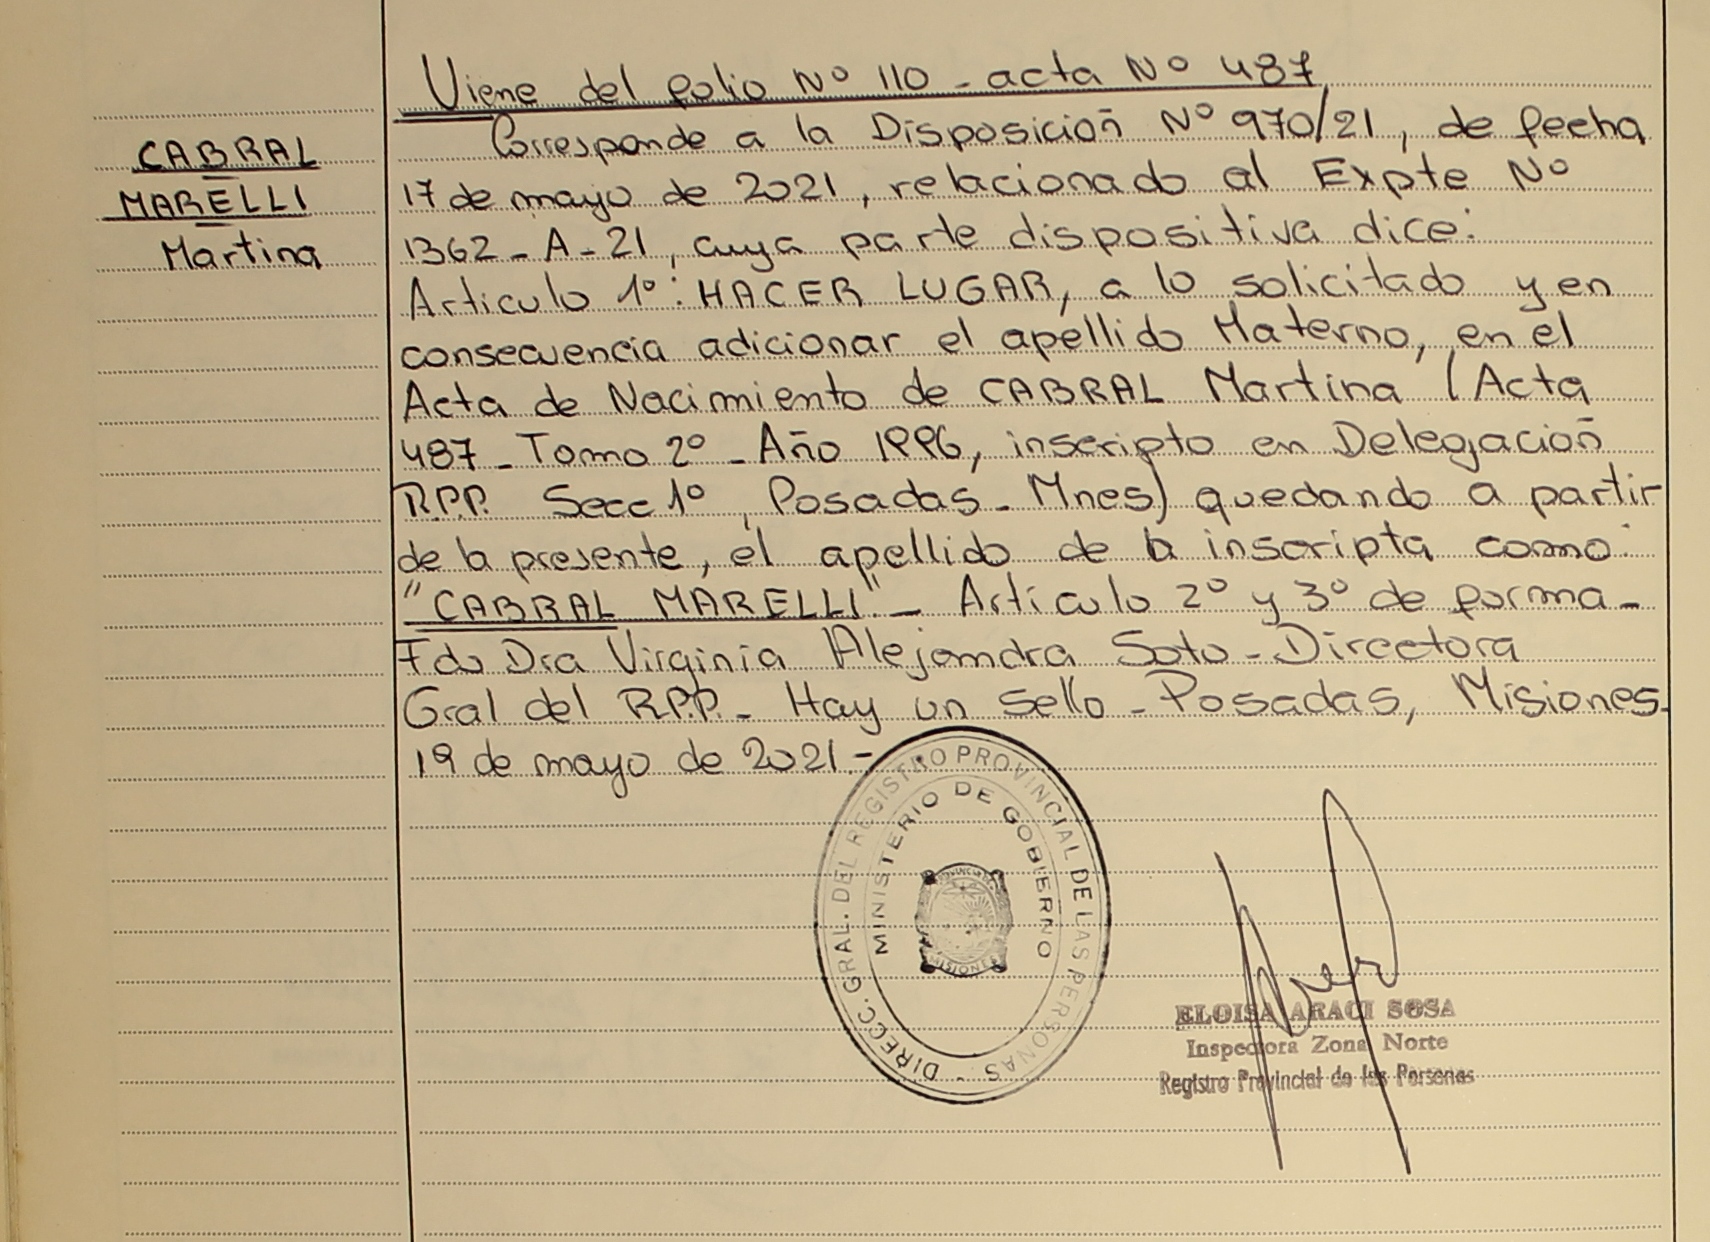 Viene del folio Nº 110 - acta Nº 487
CABRAL
MARELLI
Martina
Corresponde a la Disposición Nº 970/21, de fecha
17 de mayo de 2021, relacionado al Expte Nº
1362 - A - 21, cuya parte dispositiva dice:
Articulo 1º: HACER LUGAR, a lo solicitado y en
consecuencia adicionar el apellido Materno, en el
Acta de Nacimiento de CABRAL Martina (Acta
487 - Tomo 2º - Año 1996, inscripto en Delegación
R.P.P. Secc 1º, Posadas - Mnes) quedando a partir
de la presente, el apellido de la inscripta como:
"CABRAL MARELLI" - Artículo 2º y 3º de forma -
Fdo Dra Virginia Alejandra Soto - Directora
Gral del R.P.P. - Hay un sello - Posadas, Misiones -
19 de mayo de 2021 -
DIRECC. GRAL. DEL REGISTRO PROVINCIAL DE LAS PERSONAS -
MINISTERIO DE GOBIERNO
PROVINCIA DE
MISIONES
ELOISA ARACI SOSA
Inspectora Zona Norte
Registro Provincial de las Personas